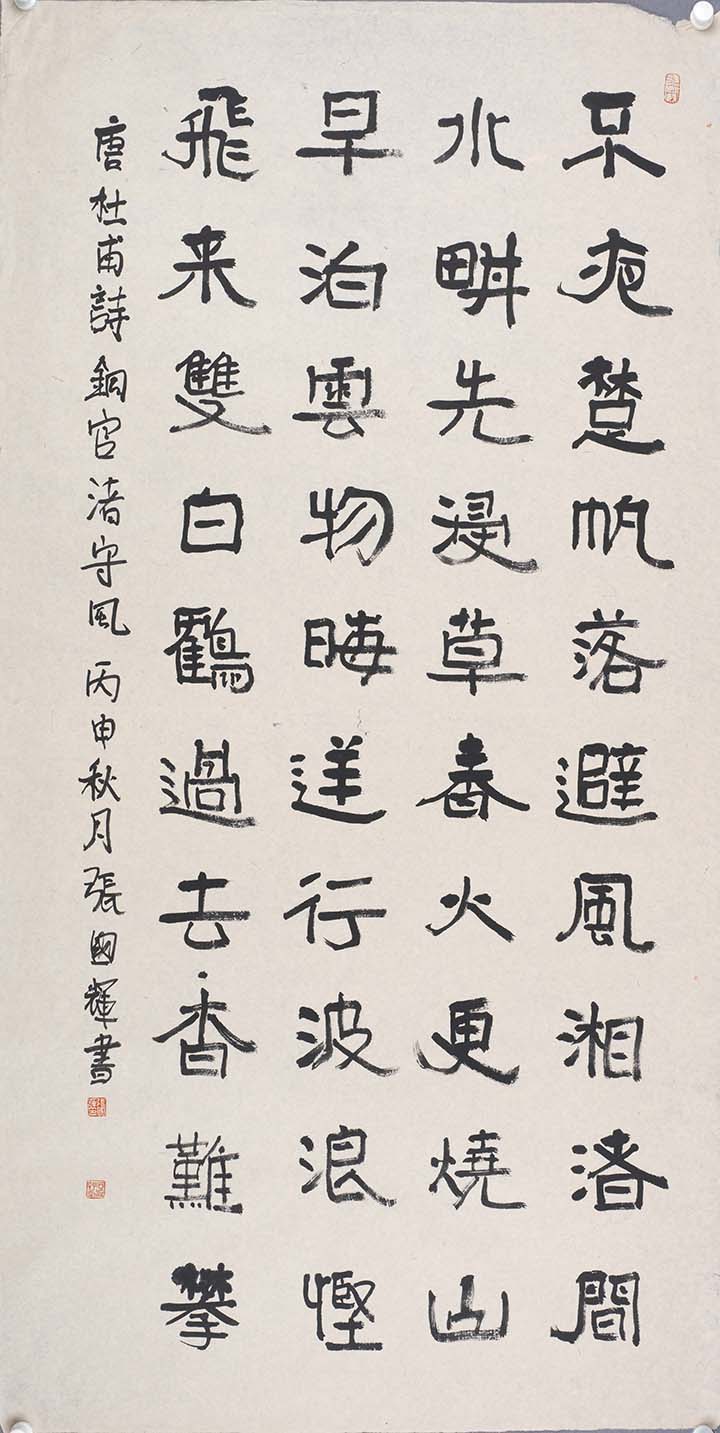 不夜楚帆落避風湘渚間
水畊先浸草春火更燒山
早泊雲物晦逆行波浪慳
飛来雙白鶴過去杳難攀
唐杜甫詩銅官渚守風 丙申秋月張國輝書